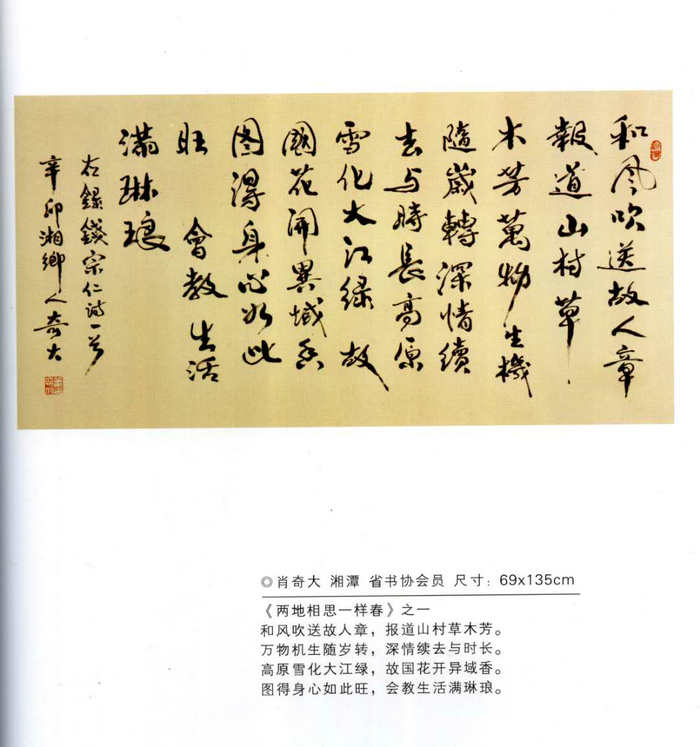 和风吹送故人章
報道山村草
木芳萬物生機
隨歲轉深情續
去与時長高原
雪化大江绿 故
國花開異域香
图得身心如此
旺 會教生活
滿琳琅
右錄錢宗仁詩一首
辛卯湘鄉人奇大
◎肖奇大 湘潭 省书协会员 尺寸：69x135cm
《两地相思一样春》之一
和风吹送故人章，报道山村草木芳。
万物机生随岁转，深情续去与时长。
高原雪化大江绿，故国花开异域香。
图得身心如此旺，会教生活满琳琅。